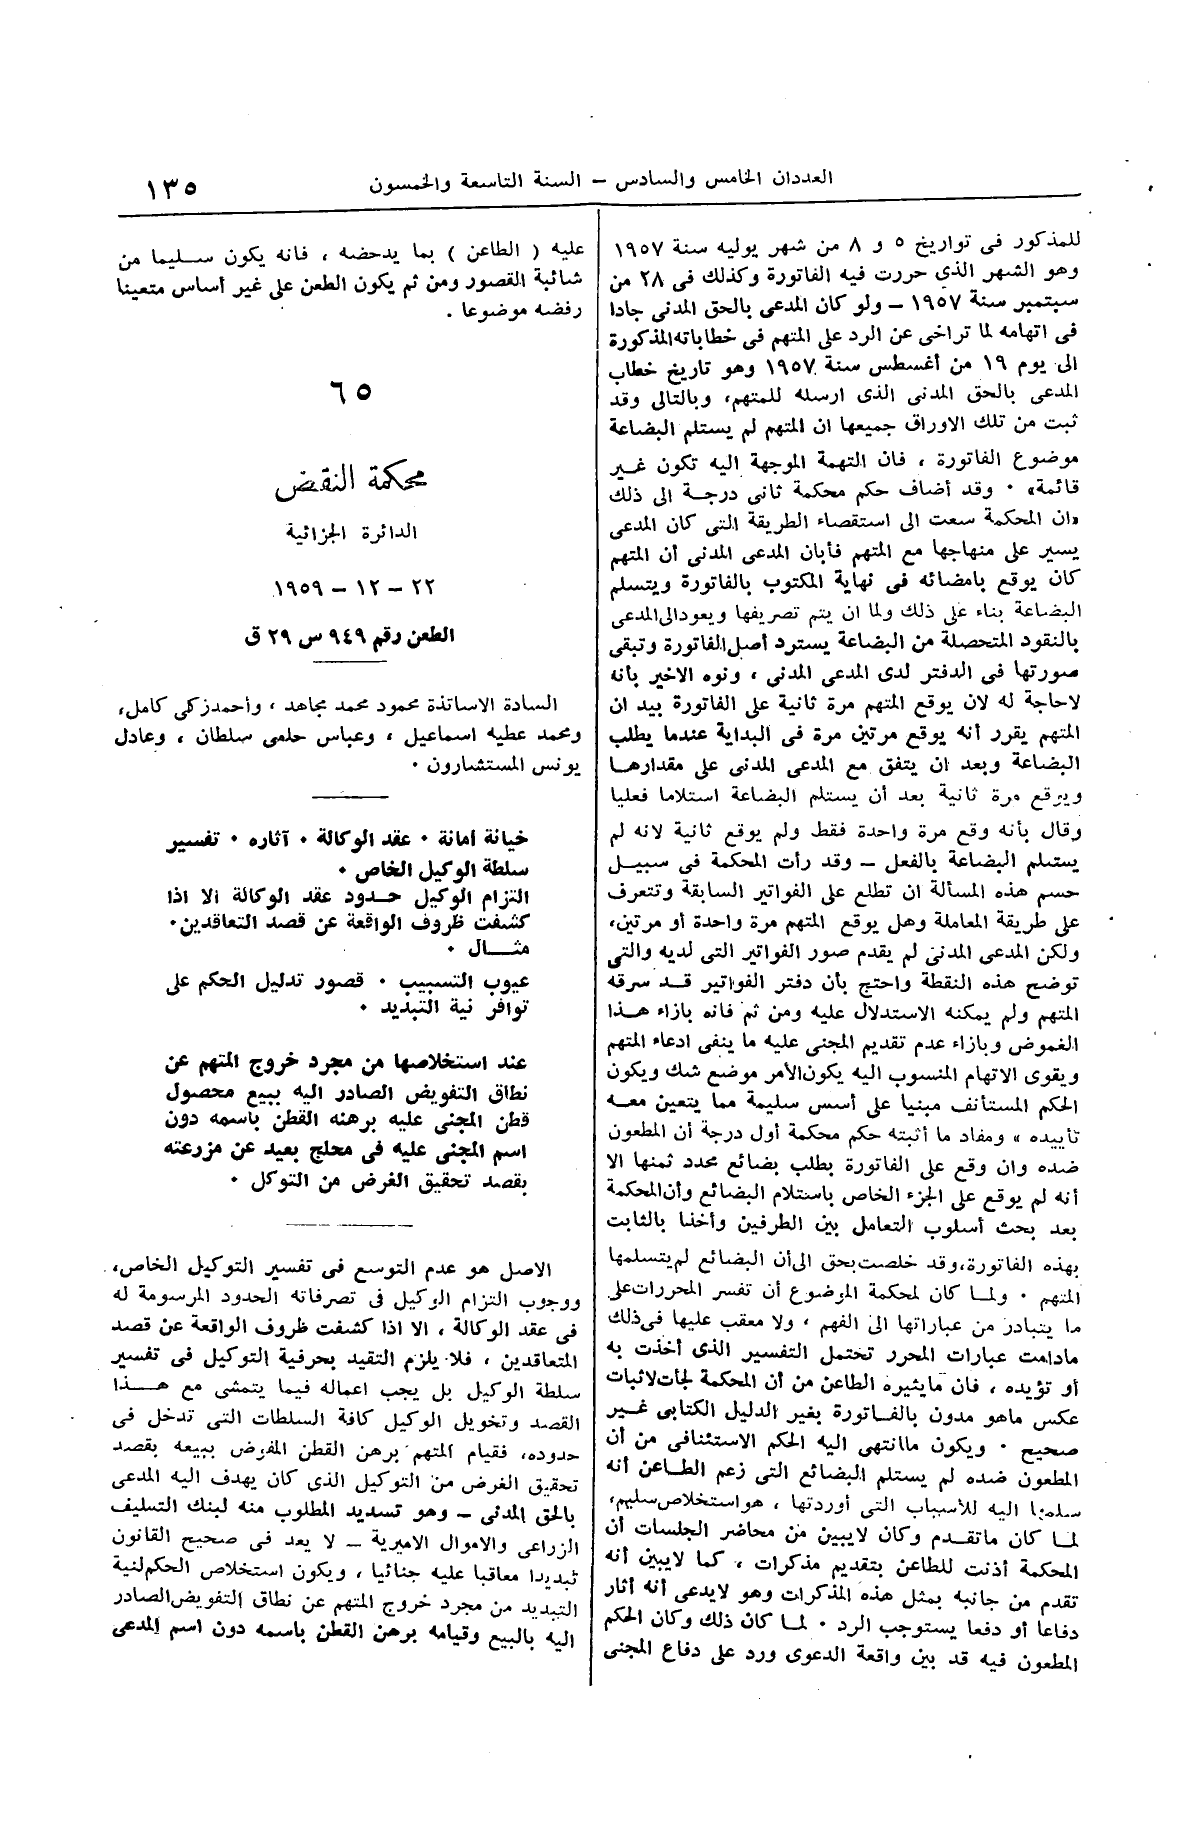 العددان الخامس والسادس – السنة التاسعة والخمسون
١٣٥
للمذكور فى تواريخ ٥ و ٨ من شهر يوليه سنة ١٩٥٧
وهو الشهر الذي حررت فيه الفاتورة وكذلك فى ٢٨ من
سبتمبر سنة ١٩٥٧ – ولو كان المدعى بالحق المدنى جادا
فى اتهامه لما تراخى عن الرد على المتهم فى خطاباته المذكورة
الى يوم ١٩ من أغسطس سنة ١٩٥٧ وهو تاريخ خطاب
المدعى بالحق المدنى الذى ارسله للمتهم، وبالتالى وقد
ثبت من تلك الاوراق جميعها ان المتهم لم يستلم البضاعة
موضوع الفاتورة ، فان التهمة الموجهة اليه تكون غير
قائمة» ٠ وقد أضاف حكم محكمة ثانى درجة الى ذلك
«ان المحكمة سعت الى استقصاء الطريقة التى كان المدعى
يسير على منهاجها مع المتهم فأبان المدعى المدنى أن المتهم
كان يوقع بامضائه فى نهاية المكتوب بالفاتورة ويتسلم
البضاعة بناء على ذلك ولما ان يتم تصريفها ويعود الى المدعى
بالنقود المتحصلة من البضاعة يسترد أصل الفاتورة وتبقى
صورتها فى الدفتر لدى المدعى المدنى ، ونوه الاخير بأنه
لاحاجة له لان يوقع المتهم مرة ثانية على الفاتورة بيد ان
المتهم يقرر أنه يوقع مرتين مرة فى البداية عندما يطلب
البضاعة وبعد ان يتفق مع المدعى المدنى على مقدارها
ويوقع مرة ثانية بعد أن يستلم البضاعة استلاما فعليا
وقال بأنه وقع مرة واحدة فقط ولم يوقع ثانية لانه لم
يستلم البضاعة بالفعل – وقد رأت المحكمة فى سبيل
حسم هذه المسألة ان تطلع على الفواتير السابقة وتتعرف
على طريقة المعاملة وهل يوقع المتهم مرة واحدة أو مرتين،
ولكن المدعى المدنى لم يقدم صور الفواتير التى لديه والتى
توضح هذه النقطة واحتج بأن دفتر الفواتير قد سرقه
المتهم ولم يمكنه الاستدلال عليه ومن ثم فانه بازاء هذا
الغموض وبازاء عدم تقديم المجنى عليه ما ينفى ادعاء المتهم
ويقوى الاتهام المنسوب اليه يكون الأمر موضع شك ويكون
الحكم المستأنف مبنيا على أسس سليمة مما يتعين معه
تأييده » ومفاد ما أثبته حكم محكمة أول درجة أن المطعون
ضده وان وقع على الفاتورة بطلب بضائع محدد ثمنها الا
أنه لم يوقع على الجزء الخاص باستلام البضائع وأن المحكمة
بعد بحث أسلوب التعامل بين الطرفين وأخذا بالثابت
بهذه الفاتورة، وقد خلصت بحق الى أن البضائع لم يتسلمها
المتهم ٠ ولما كان لمحكمة الموضوع أن تفسر المحررات على
ما يتبادر من عباراتها الى الفهم ، ولا معقب عليها فى ذلك
مادامت عبارات المحرر تحتمل التفسير الذى أخذت به
أو تؤيده ، فان مايثيره الطاعن من أن المحكمة لجأت لاثبات
عكس ماهو مدون بالفاتورة بغير الدليل الكتابى غير
صحيح ٠ ويكون ماانتهى اليه الحكم الاستئنافى من أن
المطعون ضده لم يستلم البضائع التى زعم الطاعن أنه
سلمها اليه للأسباب التى أوردتها ، هو استخلاص سليم،
لما كان ماتقدم وكان لايبين من محاضر الجلسات أن
المحكمة أذنت للطاعن بتقديم مذكرات ، كما لايبين أنه
تقدم من جانبه بمثل هذه المذكرات وهو لايدعى أنه أثار
دفاعا أو دفعا يستوجب الرد ٠ لما كان ذلك وكان الحكم
المطعون فيه قد بين واقعة الدعوى ورد على دفاع المجنى
عليه ( الطاعن ) بما يدحضه ، فانه يكون سليما من
شائبة القصور ومن ثم يكون الطعن على غير أساس متعينا
رفضه موضوعا .
٦٥
محكمة النقض
الدائرة الجزائية
٢٢ – ١٢ – ١٩٥٩
الطعن رقم ٩٤٩ س ٢٩ ق
السادة الاساتذة محمود محمد مجاهد ، وأحمد زكى كامل،
ومحمد عطيه اسماعيل ، وعباس حلمى سلطان ، وعادل
يونس المستشارون ٠
خيانة أمانة ٠ عقد الوكالة ٠ آثاره ٠ تفسير
سلطة الوكيل الخاص ٠
التزام الوكيل حدود عقد الوكالة الا اذا
كشفت ظروف الواقعة عن قصد التعاقدين٠
مثال ٠
عيوب التسبيب ٠ قصور تدليل الحكم على
توافر نية التبديد ٠
عند استخلاصها من مجرد خروج المتهم عن
نطاق التفويض الصادر اليه ببيع محصول
قطن المجنى عليه برهنه القطن باسمه دون
اسم المجنى عليه فى محلج بعيد عن مزرعته
بقصد تحقيق الغرض من التوكل ٠
الاصل هو عدم التوسع فى تفسير التوكيل الخاص،
ووجوب التزام الوكيل فى تصرفاته الحدود المرسومة له
فى عقد الوكالة ، الا اذا كشفت ظروف الواقعة عن قصد
المتعاقدين ، فلا يلزم التقيد بحرفية التوكيل فى تفسير
سلطة الوكيل بل يجب اعماله فيما يتمشى مع هذا
القصد وتخويل الوكيل كافة السلطات التى تدخل فى
حدوده، فقيام المتهم برهن القطن المفوض ببيعه بقصد
تحقيق الغرض من التوكيل الذى كان يهدف اليه المدعى
بالحق المدنى – وهو تسديد المطلوب منه لبنك التسليف
الزراعى والاموال الاميرية – لا يعد فى صحيح القانون
تبديدا معاقبا عليه جنائيا ، ويكون استخلاص الحكم لنية
التبديد من مجرد خروج المتهم عن نطاق التفويض الصادر
اليه بالبيع وقيامه برهن القطن باسمه دون اسم المدعى